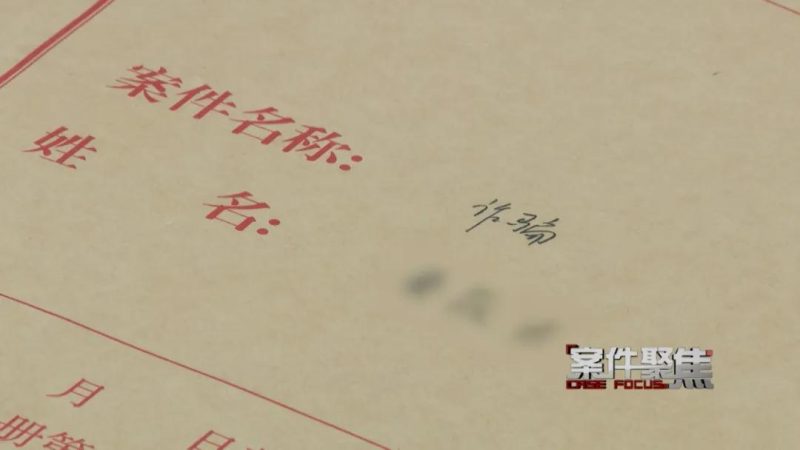 案件名称:
诈骗
姓名:
月
册第
日
案件聚焦
CASE FOCUS